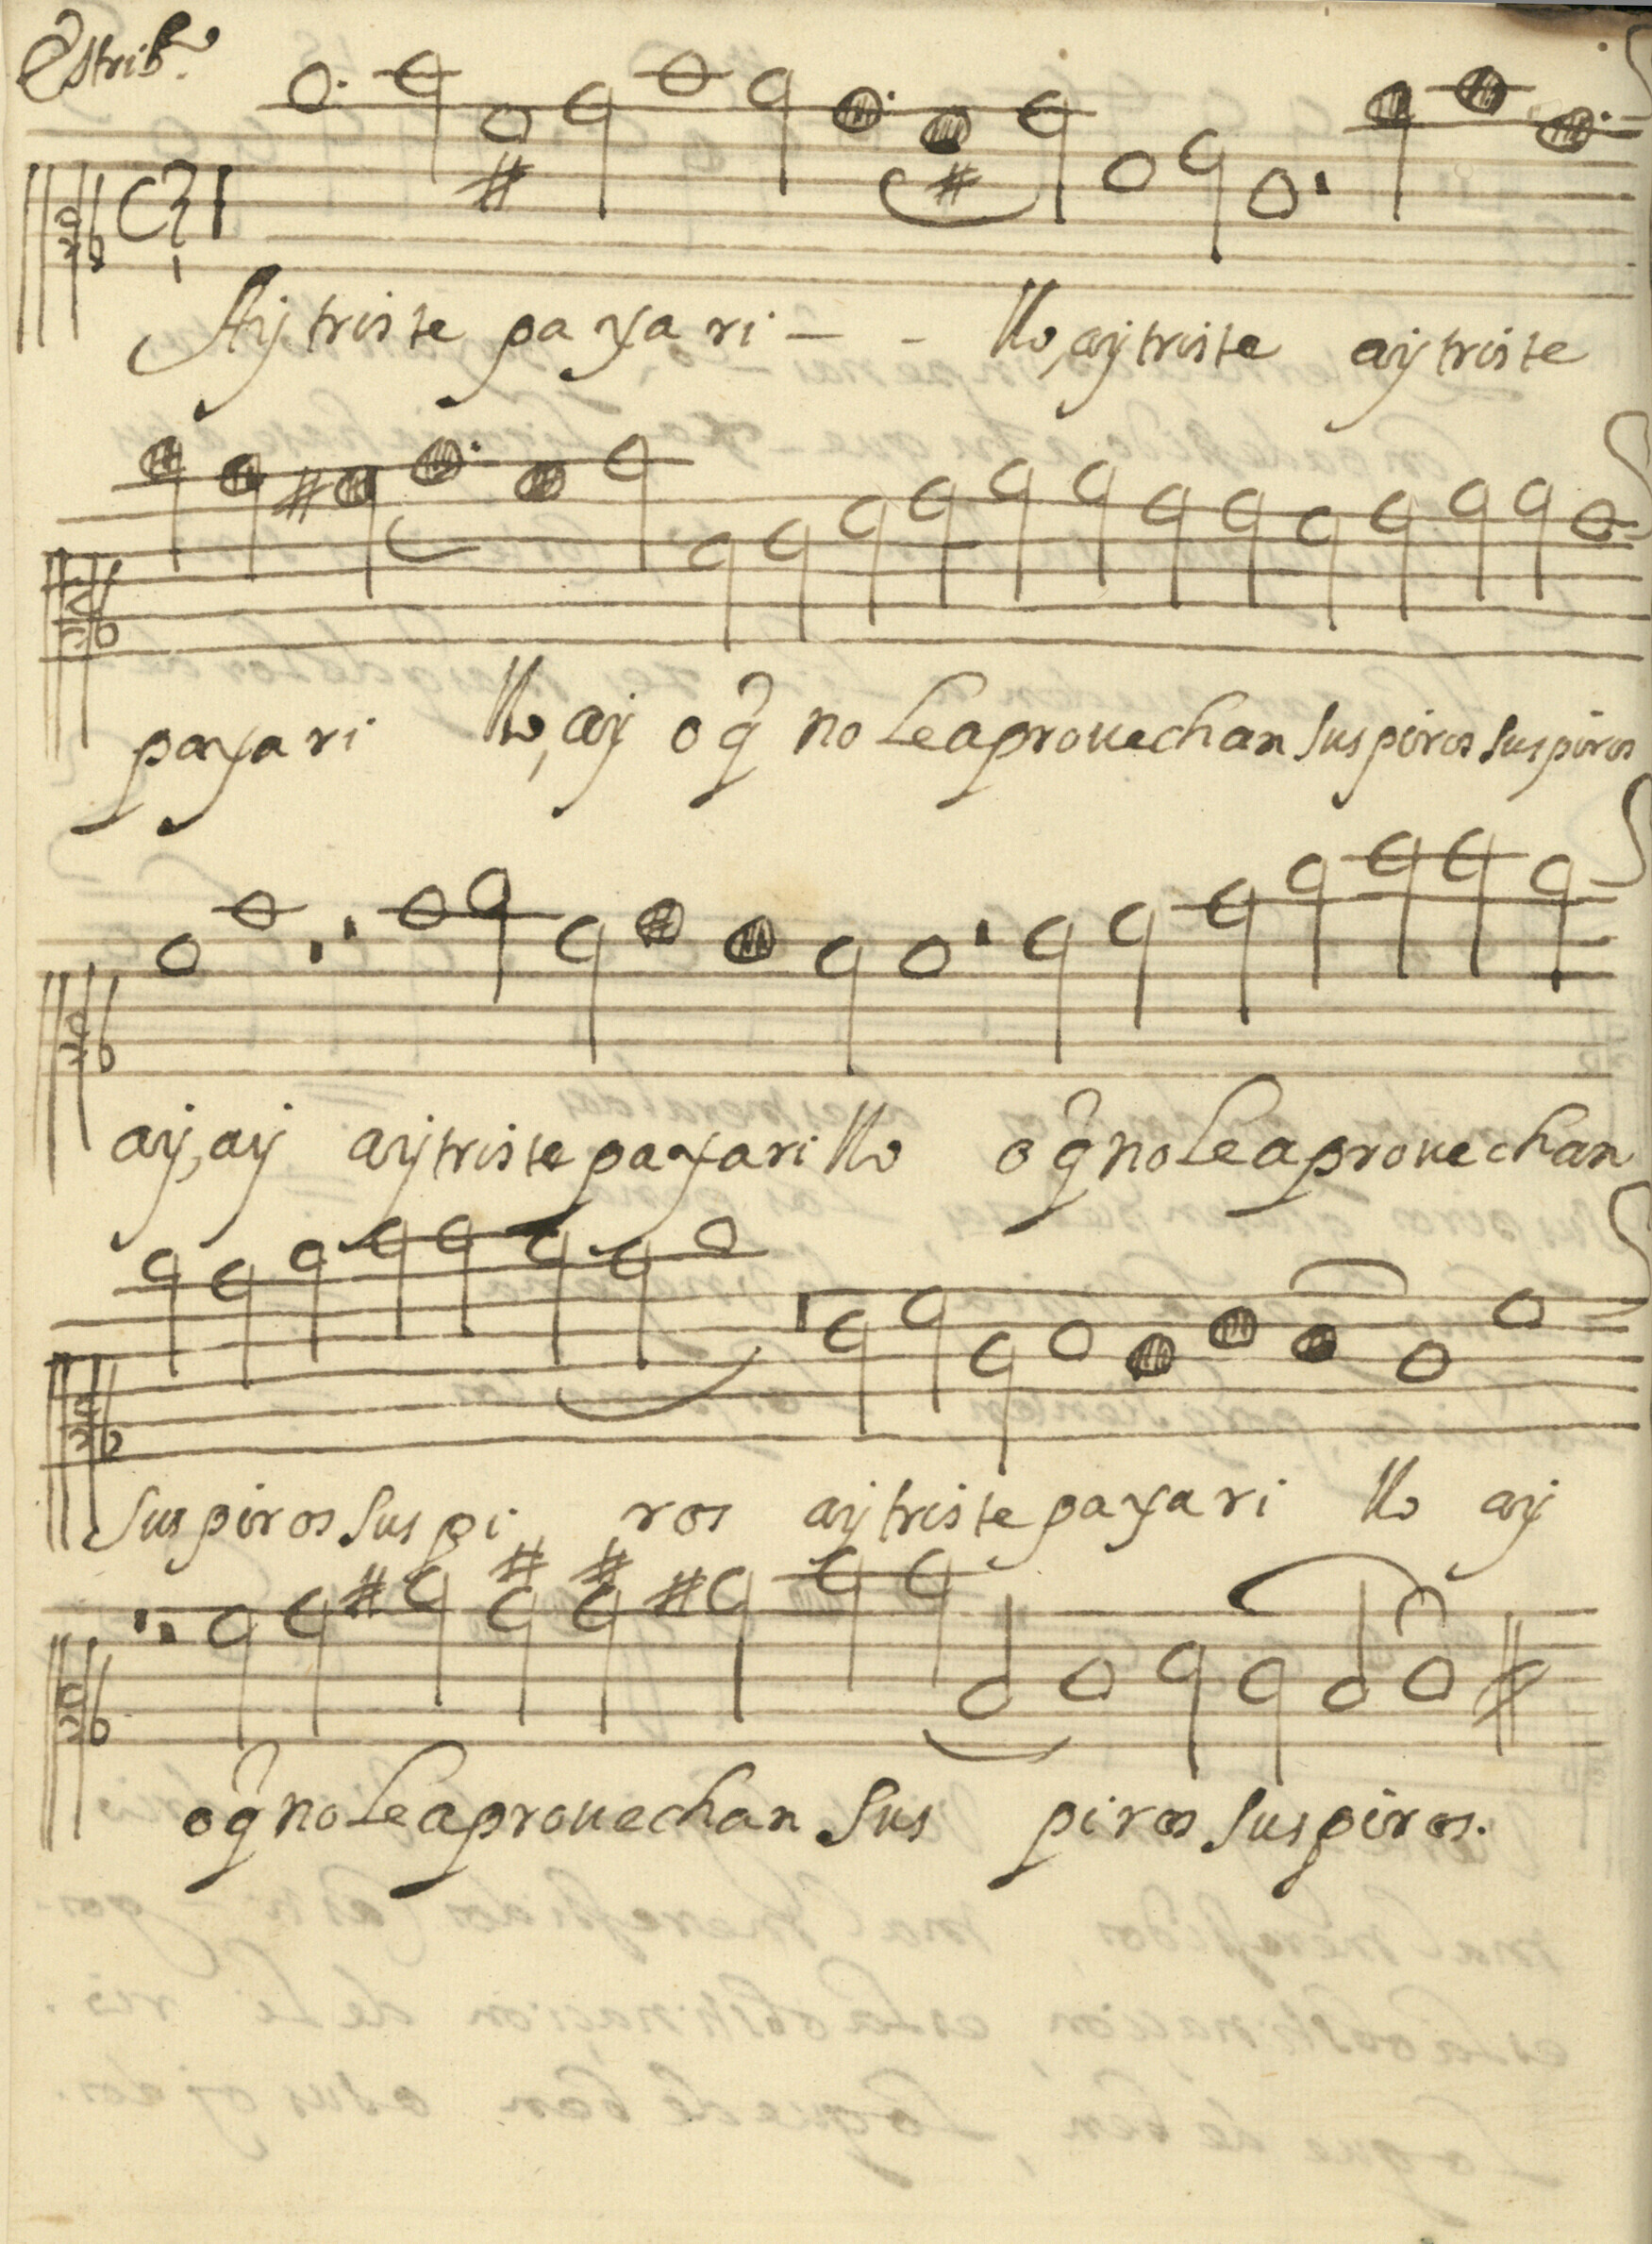 Estribo.
Ay triste paxari - - llo, ay triste ay triste
paxari llo, ay o q̃ no le aprouechan suspiros suspiros
ay, ay ay triste paxari llo o q̃ no le aprouechan
suspiros suspi ros ay triste paxari llo ay
o q̃ no le aprouechan sus piros suspiros.